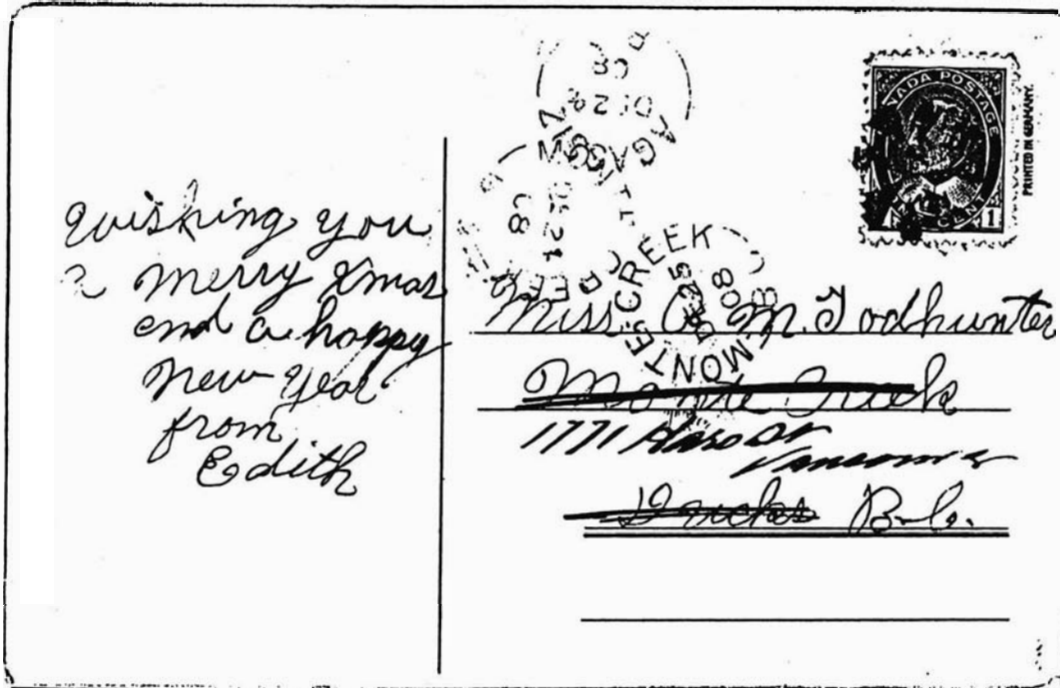 Wishing you
a merry Xmas
and a happy
New Year
from
Edith
AGASSIZ
DE 24
08
MONTE CREEK
DE 25
08
B.C.
CANADA POSTAGE
1
PRINTED IN GERMANY.
Miss M. Todhunter
Monte Creek
1771 Haro St
Vancouver
B.C.